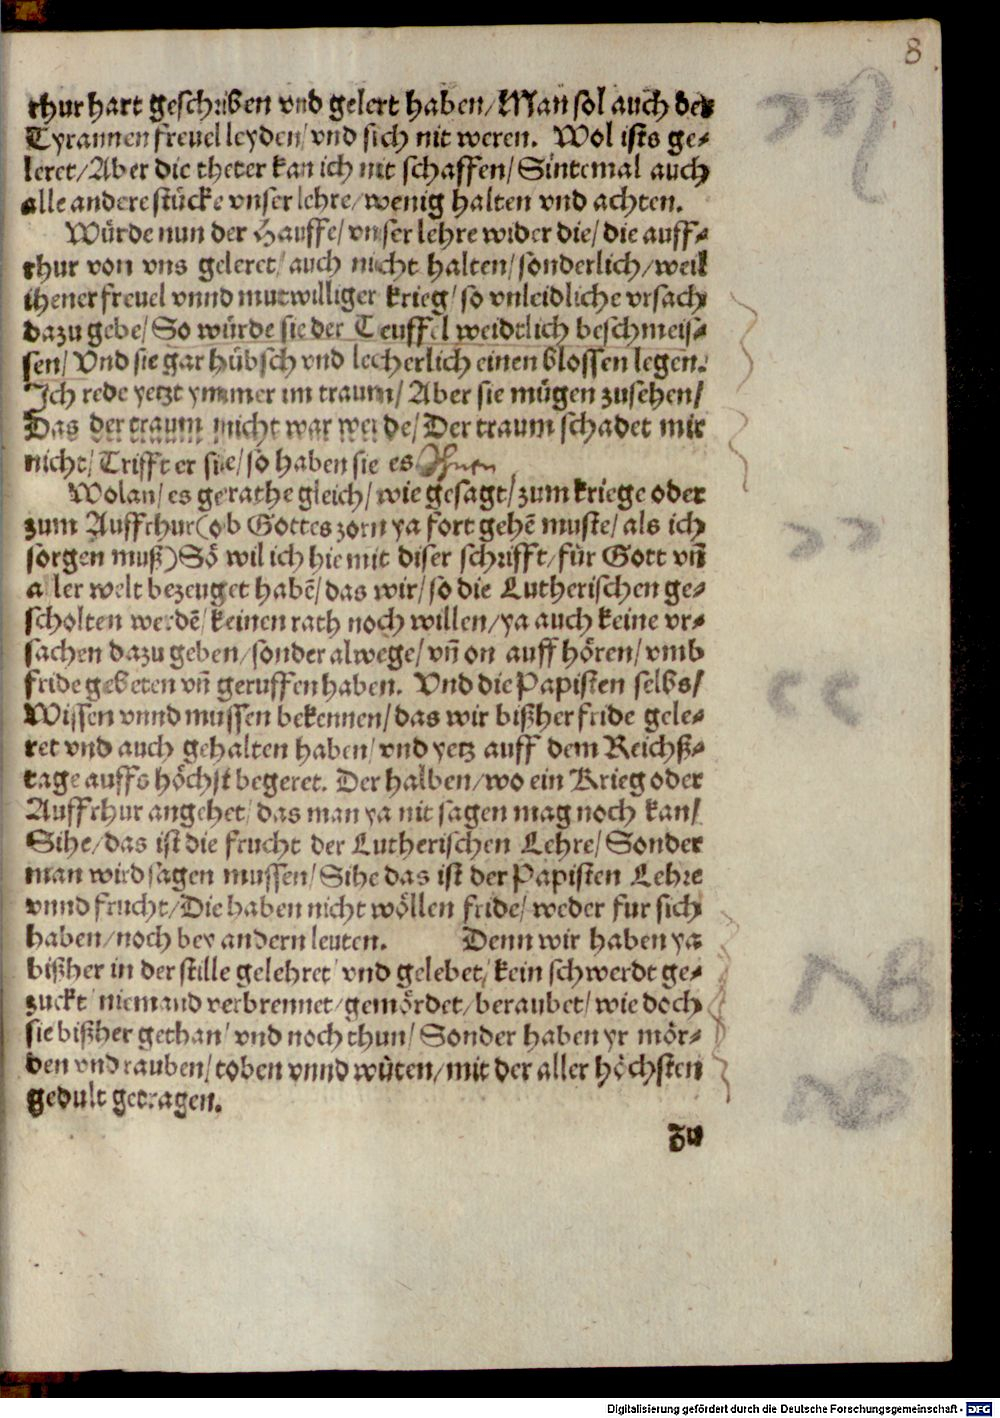 8
rhur hart geschriben vnd gelert haben/ Man sol auch der
Tyrannen freuel leyden/ vnd sich nit weren. Wol ists ge-
leret/ Aber die theter kan ich nit schaffen/ Sintemal auch
alle andere stücke vnser lehre/ wenig halten vnd achten.
Würde nun der Hauffe/ vnser lehre wider die/ die auff-
rhur von vns geleret/ auch nicht halten/ sonderlich/ weil
ihener freuel vnnd mutwilliger krieg/ so vnleidliche vrsach
dazu gebe/ So würde sie der Teuffel weidtlich beschmeis-
sen/ Vnd sie gar hübsch vnd lecherlich einen blossen legen.
Ich rede yetzt ymmer im traum/ Aber sie mügen zusehen/
Das der traum nicht war werde/ Der traum schadet mir
nicht/ Trifft er sie/ so haben sie es
Wolan/ es gerathe gleich/ wie gesagt/ zum kriege oder
zum Auffrhur (ob Gottes zorn ya fort gehē muste/ als ich
sorgen muß) Sō wil ich hie mit diser schrifft/ für Gott vñ
aller welt bezeuget habē/ das wir/ so die Lutherischen ge-
scholten werdē/ keinen rath noch willen/ ya auch keine vr-
sachen dazu geben/ sonder alwege/ vñ on auff hören/ vmb
fride gebeten vñ geruffen haben. Vnd die Papisten selbs/
Wissen vnnd mussen bekennen/ das wir bißher fride gele-
ret vnd auch gehalten haben/ vnd yetz auff dem Reichß-
tage auffs höchst begeret. Der halben/ wo ein Krieg oder
Auffrhur angehet/ das man ya nit sagen mag noch kan/
Sihe/ das ist die frucht der Lutherischen Lehre/ Sonder
man wird sagen mussen/ Sihe das ist der Papisten Lehre
vnnd frucht/ Die haben nicht wöllen fride/ weder fur sich
haben/ noch bey andern leuten. Denn wir haben ya
bißher in der stille gelehret/ vnd gelebet/ kein schwerdt ge-
zuckt/ niemand verbrennet/ gemördet/ beraubet/ wie doch
sie bißher gethan/ vnd noch thun/ Sonder haben yr mör-
den vnd rauben/ toben vnnd wüten/ mit der aller höchsten
gedult getragen.
zu
Digitalisierung gefördert durch die Deutsche Forschungsgemeinschaft - DFG